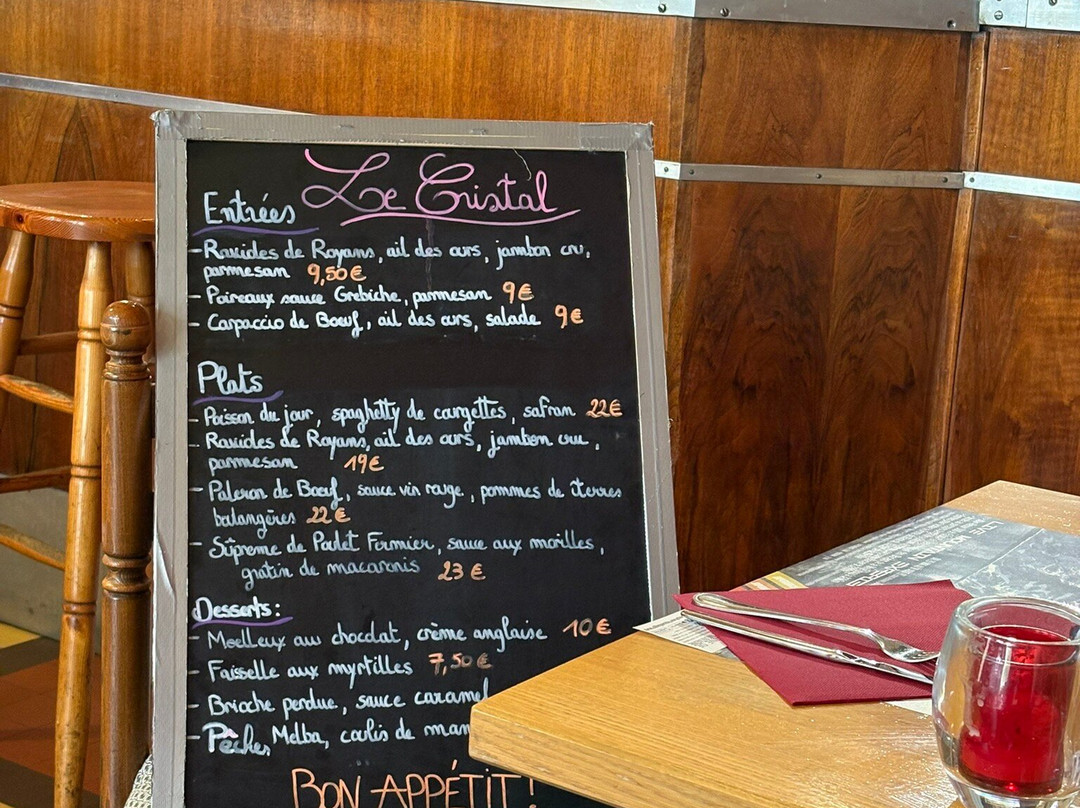 Le Cristal
Entrées
- Ravioles de Royans, ail des ours, jambon cru,
parmesan 9,50€
- Poireaux sauce Grebiche, parmesan 9€
- Carpaccio de Bœuf, ail des ours, salade 9€
Plats
- Poisson du jour, spaghetty de courgettes, safran 22€
- Ravioles de Royans, ail des ours, jambon cru,
parmesan 19€
- Paleron de Bœuf, sauce vin rouge, pommes de terres
boulangères 22€
- Suprême de Poulet Fermier, sauce aux morilles,
gratin de macaronis 23€
Desserts:
- Moelleux au chocolat, crème anglaise 10€
- Faisselle aux myrtilles 7,50€
- Brioche perdue, sauce caramel
- Pêches Melba, coulis de man
BON APPÉTIT!